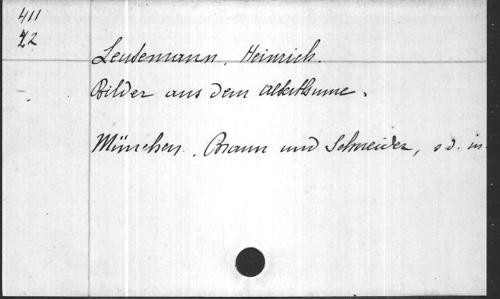 411
Z2
Leutemann, Heinrich.
Bilder aus dem Alterthume.
München, Braun und Schneider, s.d. in